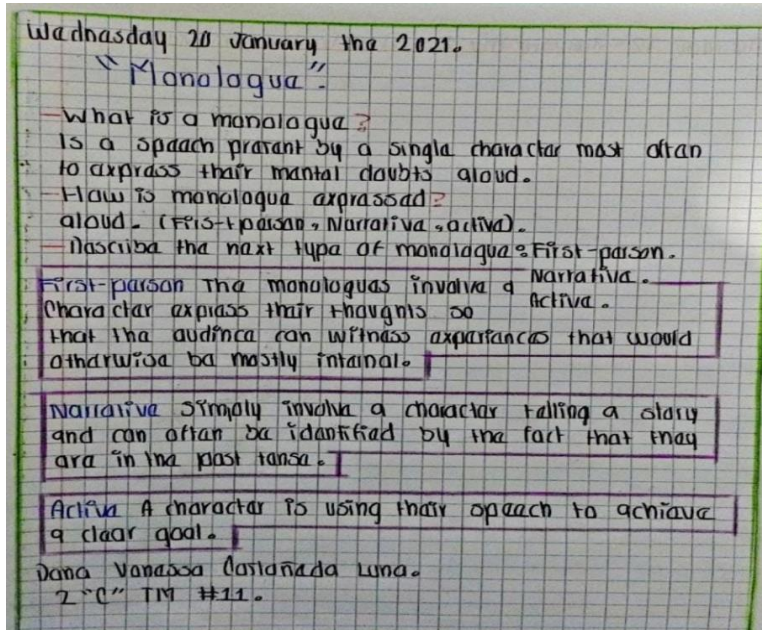 Wednesday 20 January the 2021.
"Monologue".
-What is a monologue?
Is a speech present by a single character most often
to express their mental doubts aloud.
-How is monologue expressed?
aloud. (First-person, Narrative, active).
-Describe the next type of monologue: First-person.
Narrative.
Active.
First-person The monologues involve a
character express their thoughts so
that the audince can witness experiences that would
otherwise be mostly internal.
Narrative Simply involve a character telling a story
and can often be identified by the fact that they
are in the past tense.
Active A character is using their speech to achieve
a clear goal.
Dana Vanessa Castañeda Luna.
2 "C" TM #11.